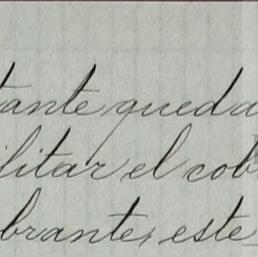 tante queda
ilitar el cob
brante, este